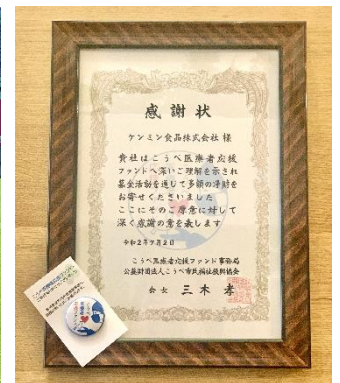 感謝状
ケンミン食品株式会社 様
貴社はこうべ医療者応援
ファンドへ深いご理解を示され
募金活動を通じて多額の浄財を
お寄せくださいました
ここにそのご厚意に対して
深く感謝の意を表します
令和2年7月2日
こうべ医療者応援ファンド事務局
公益財団法人こうべ市民福祉振興協会
会長 三木 孝